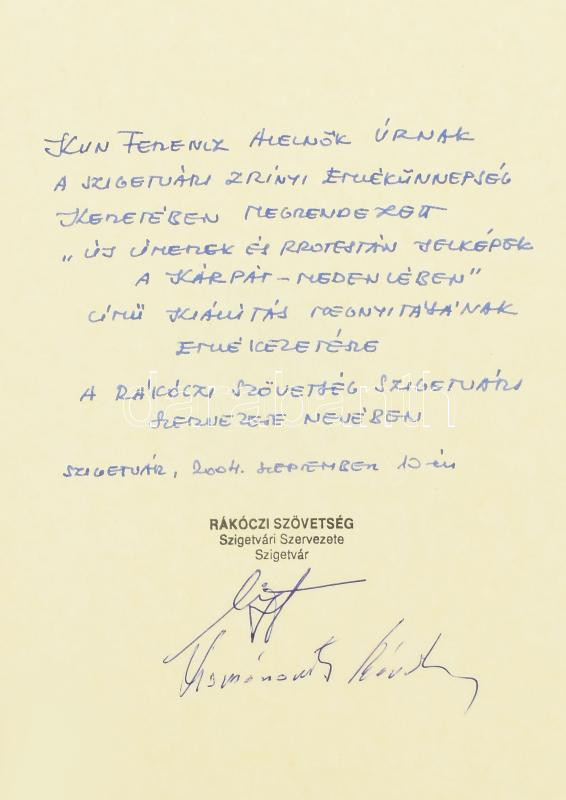 KUN FERENCZ ALELNÖK ÚRNAK
A SZIGETVÁRI ZRÍNYI EMLÉKÜNNEPSÉG
KERETÉBEN MEGRENDEZETT
„ÚJ CÍMEREK ÉS PROTESTÁN JELKÉPEK
A KÁRPÁT-MEDENCÉBEN"
CÍMŰ KIÁLLÍTÁS MEGNYITÁSÁNAK
EMLÉKEZETÉRE
A RÁKÓCZI SZÖVETSÉG SZIGETVÁRI
SZERVEZETE NEVÉBEN
darabanth
SZIGETVÁR, 2004. SZEPTEMBER 10-én
RÁKÓCZI SZÖVETSÉG
Szigetvári Szervezete
Szigetvár